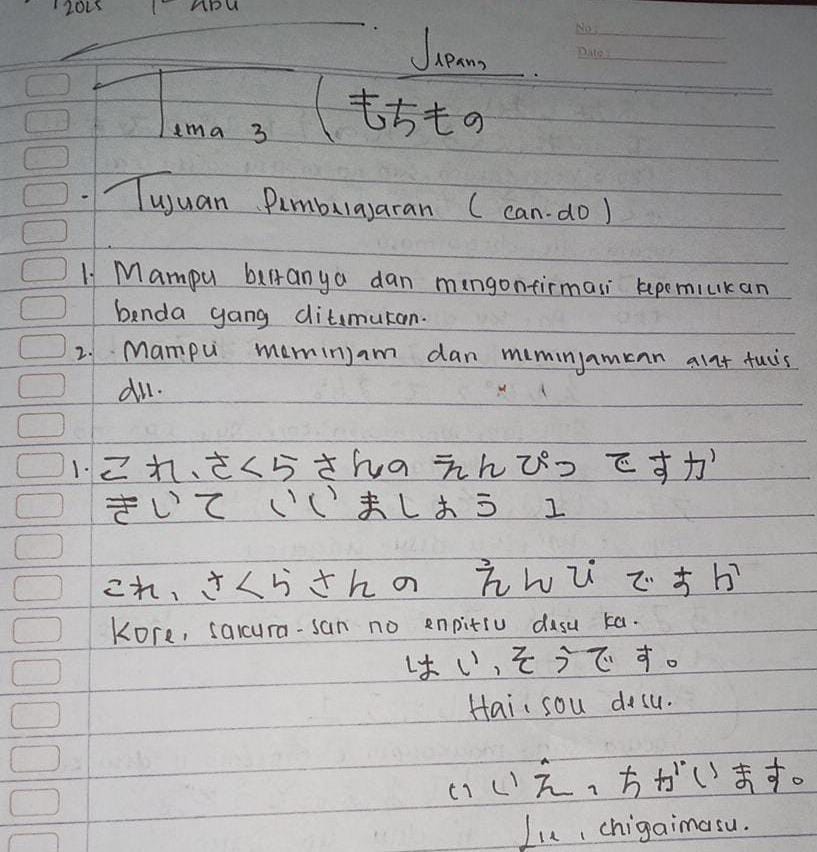 Jepang
No:
Date:
Tema 3 (もちもの
- Tujuan Pembelajaran ( can-do )
1. Mampu bertanya dan mengonfirmasi kepemilikan
benda yang ditemukan.
2. Mampu meminjam dan meminjamkan alat tulis
dll.
1. これ、さくらさんの えんぴつ ですか
きいて いいましょう 1
これ、さくらさんの えんぴ ですか
Kore, sakura-san no enpitsu desu ka.
はい、そうです。
Hai, sou desu.
いいえ、ちがいます。
Iie, chigaimasu.